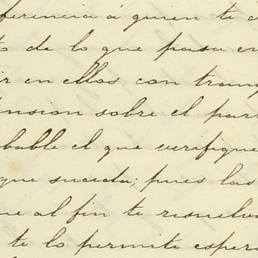 ferencia á quien te d
to de lo que pasa en
ir en ellos con tranq
ension sobre el par
bable el que verifique
que suceda; pues las
ue al fin te resuelva
te lo permite esper